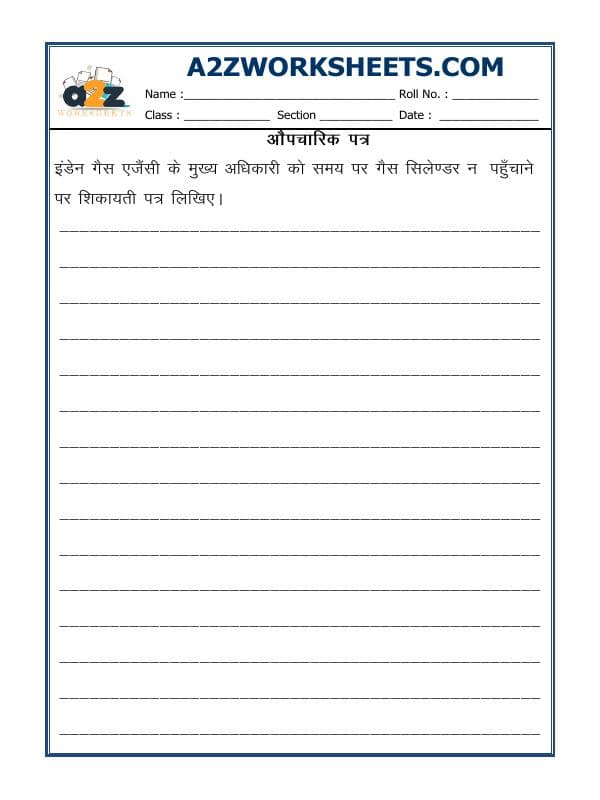 A2ZWORKSHEETS.COM
a2z
WORKSHEETS
Name :______________________________ Roll No. : ____________
Class : ____________ Section __________ Date : ______________
औपचारिक पत्र
इंडेन गैस एजैंसी के मुख्य अधिकारी को समय पर गैस सिलेण्डर न पहुँचाने
पर शिकायती पत्र लिखिए।